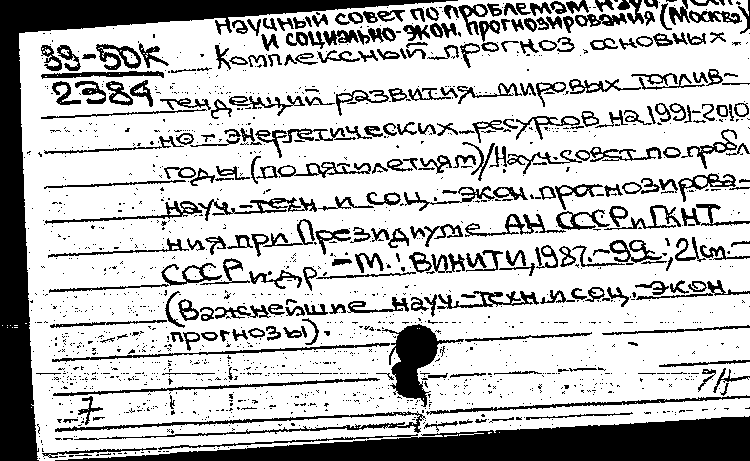 Научный совет по проблемам науч.-техн.
и социально-экон. прогнозирования (Москва)
89-50К
2384
Комплексный прогноз основных
тенденций развития мировых топлив-
но-энергетических ресурсов на 1991-2010
годы (по пятилетиям)/Науч. совет по пробл.
науч.-техн. и соц.-экон. прогнозирова-
ния при Президиуме АН СССР и ГКНТ
СССР и др. - М.: ВИНИТИ, 1987. - 99с.; 21см. -
(Важнейшие науч.-техн. и соц.-экон.
прогнозы).
7